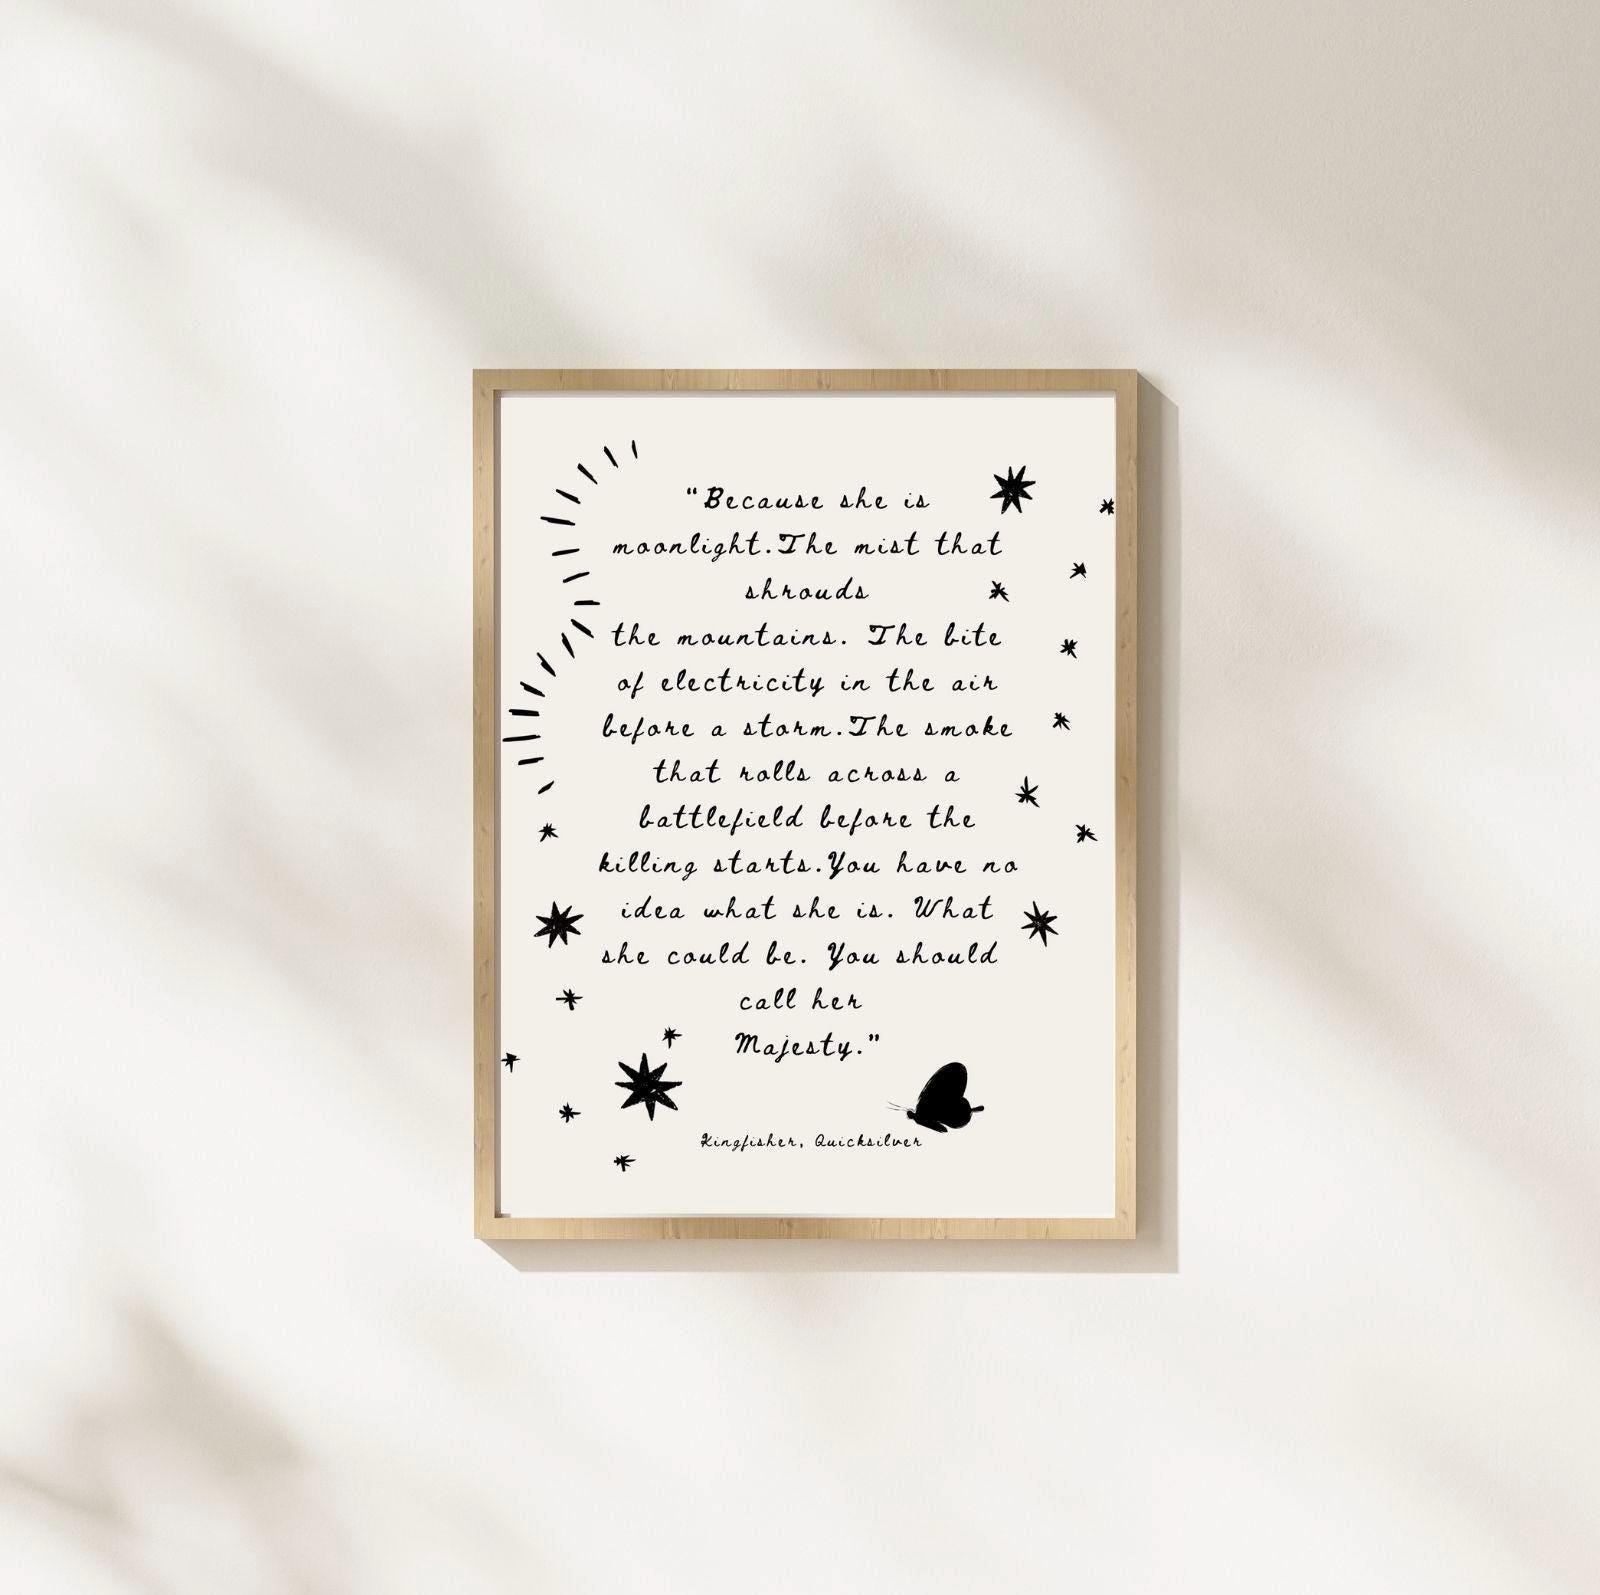 "Because she is
moonlight.The mist that
shrouds
the mountains. The bite
of electricity in the air
before a storm.The smoke
that rolls across a
battlefield before the
killing starts.You have no
idea what she is. What
she could be. You should
call her
Majesty."
Kingfisher, Quicksilver